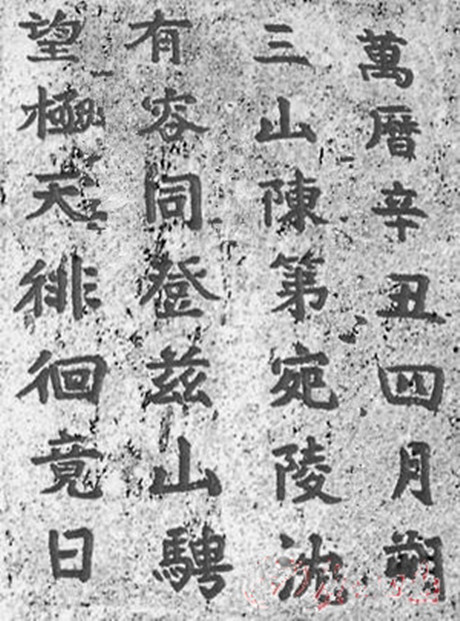 萬曆辛丑四月朔
三山陳第宛陵沈
有容同登茲山騁
望極天徘徊竟日